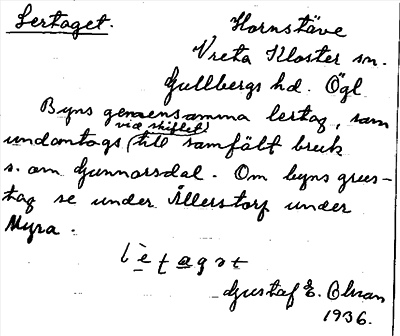 Lertaget.
Hornstäve
Vreta Kloster sn.
Gullbergs hd. Ögl
Byns gemensamma lertag, som
vid skiftet
undantogs till samfält bruk
s. om Gunnorsdal. Om byns grus-
tag se under Ållerstorp under
Myra.
Gustaf E. Olsson
1936.